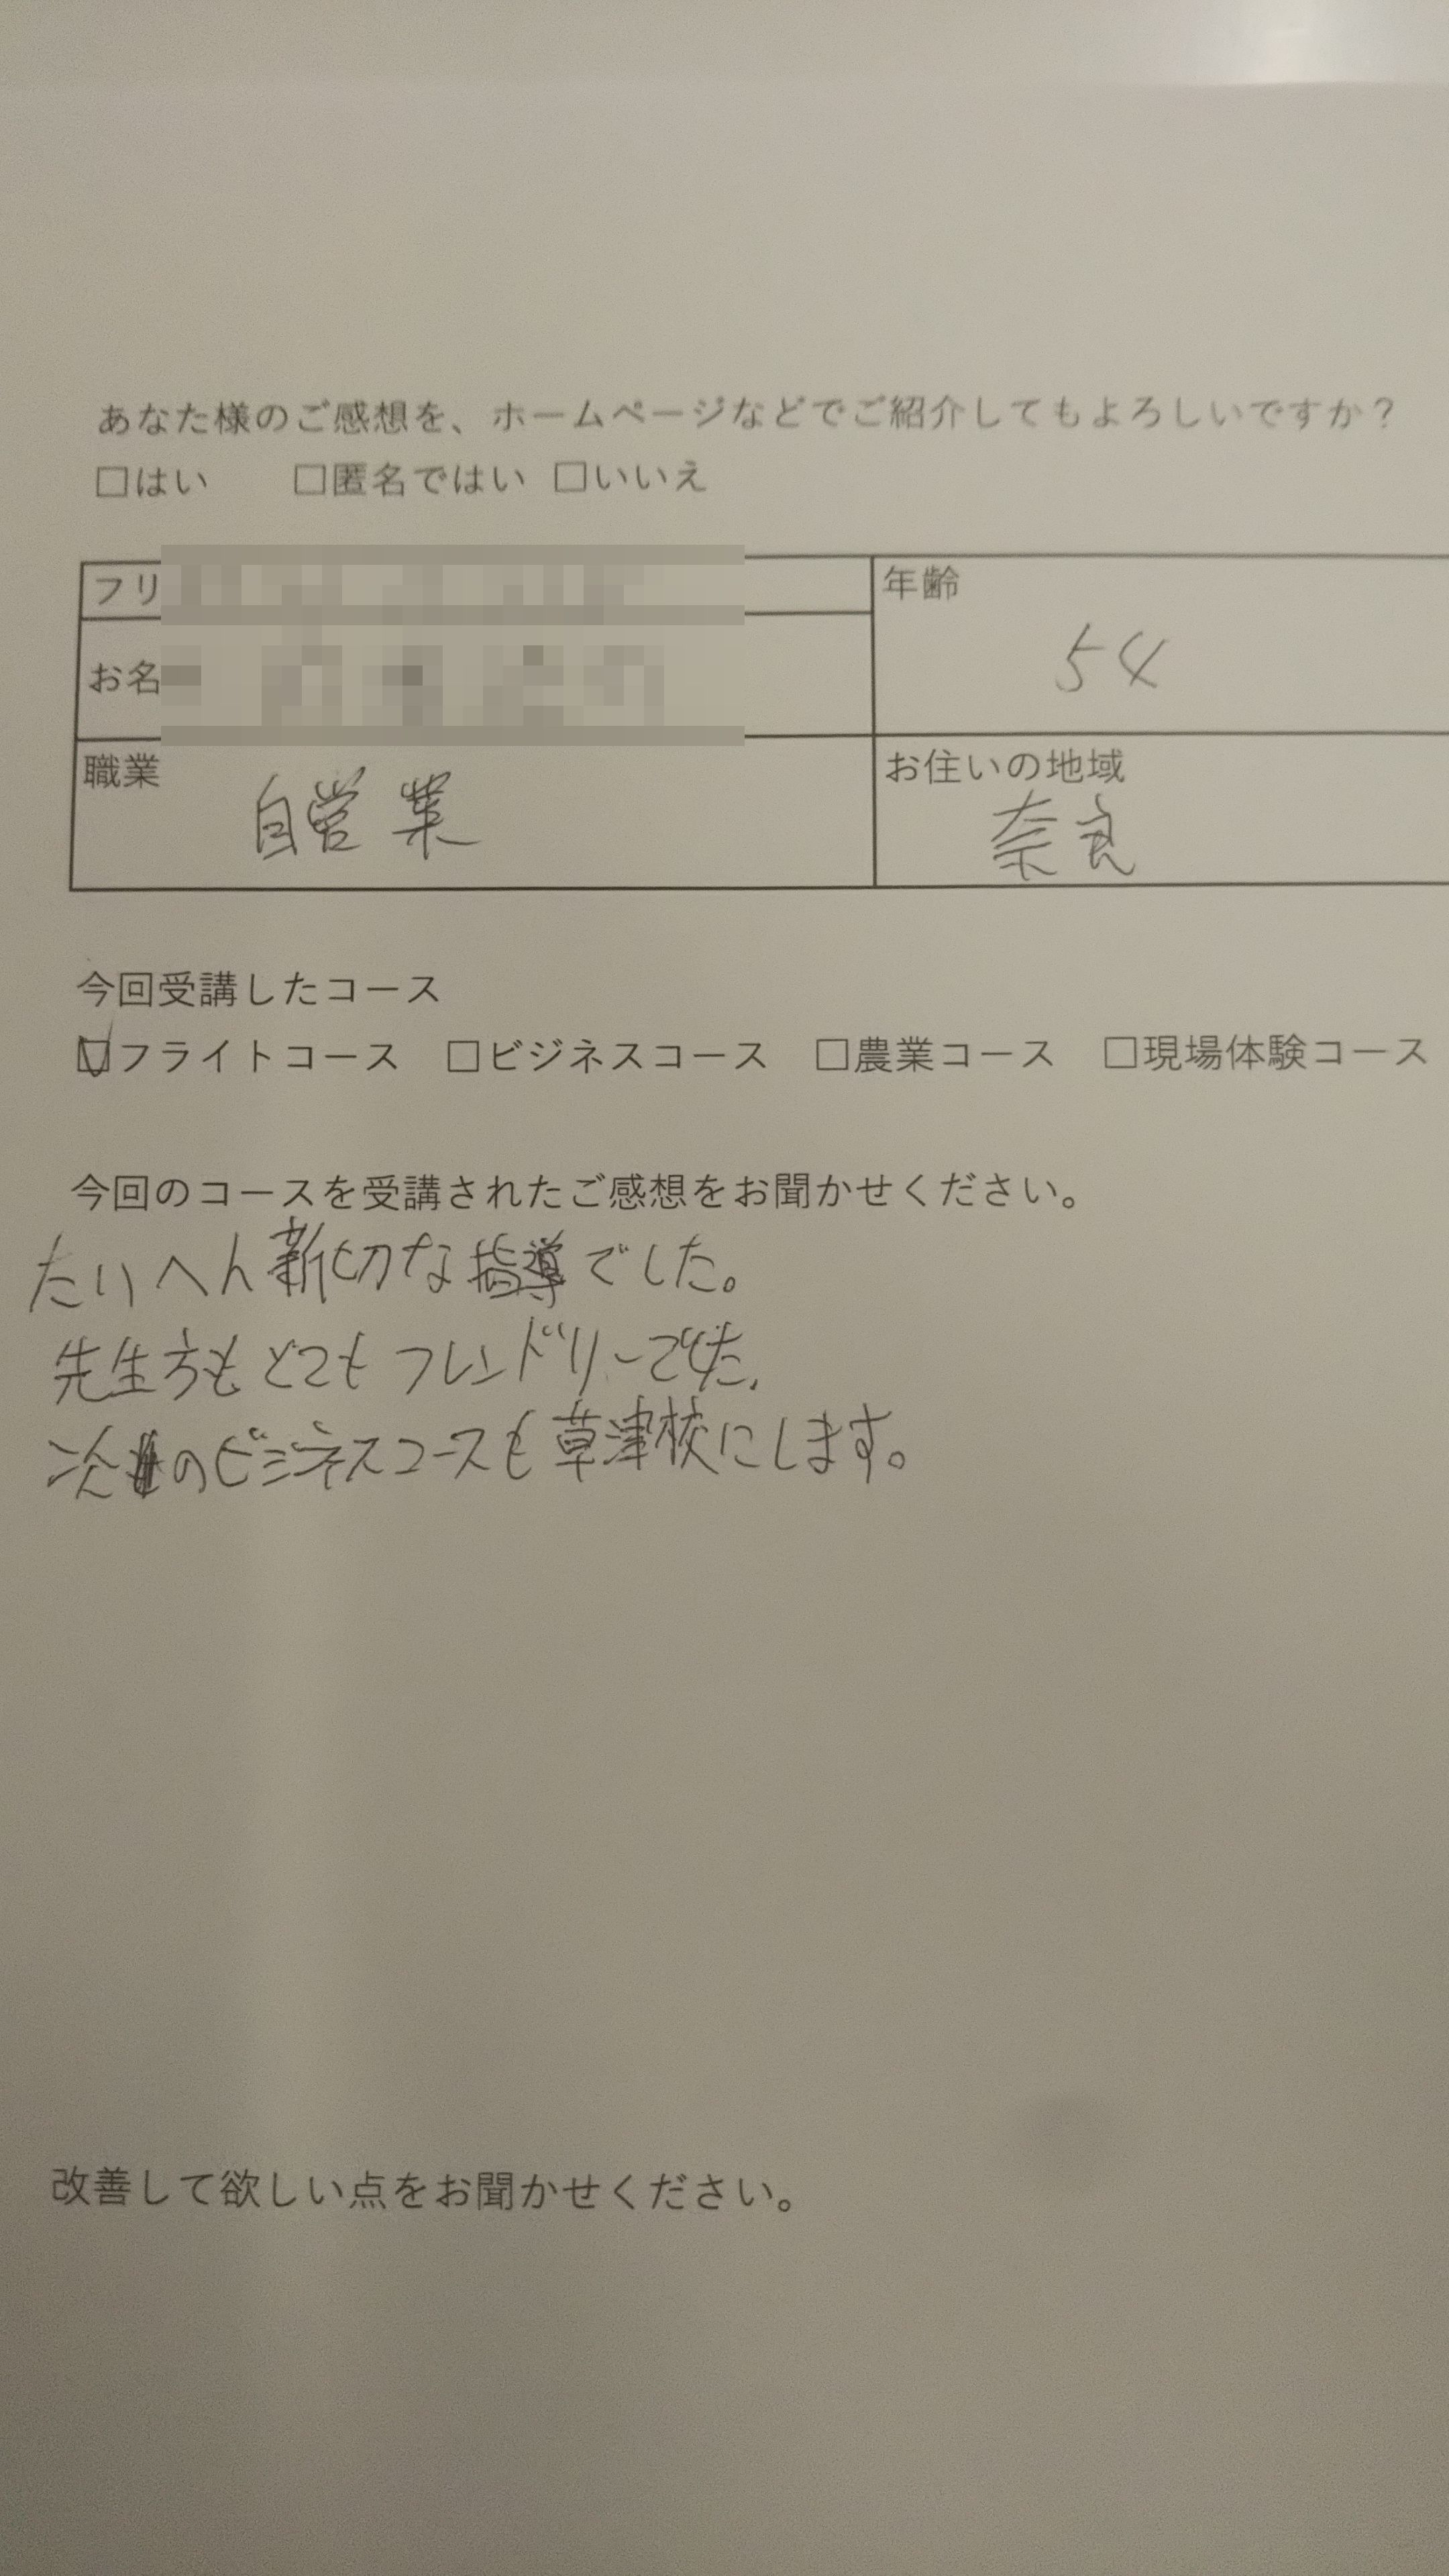 あなた様のご感想を、ホームページなどでご紹介してもよろしいですか？
□はい □匿名ではい □いいえ
フリ
年齢
54
お名
職業
自営業
お住いの地域
奈良
今回受講したコース
☑フライトコース □ビジネスコース □農業コース □現場体験コース
今回のコースを受講されたご感想をお聞かせください。
たいへん新切な指導でした。
先生方もとてもフレンドリーでした。
次のビジネスコースも草津校にします。
改善して欲しい点をお聞かせください。